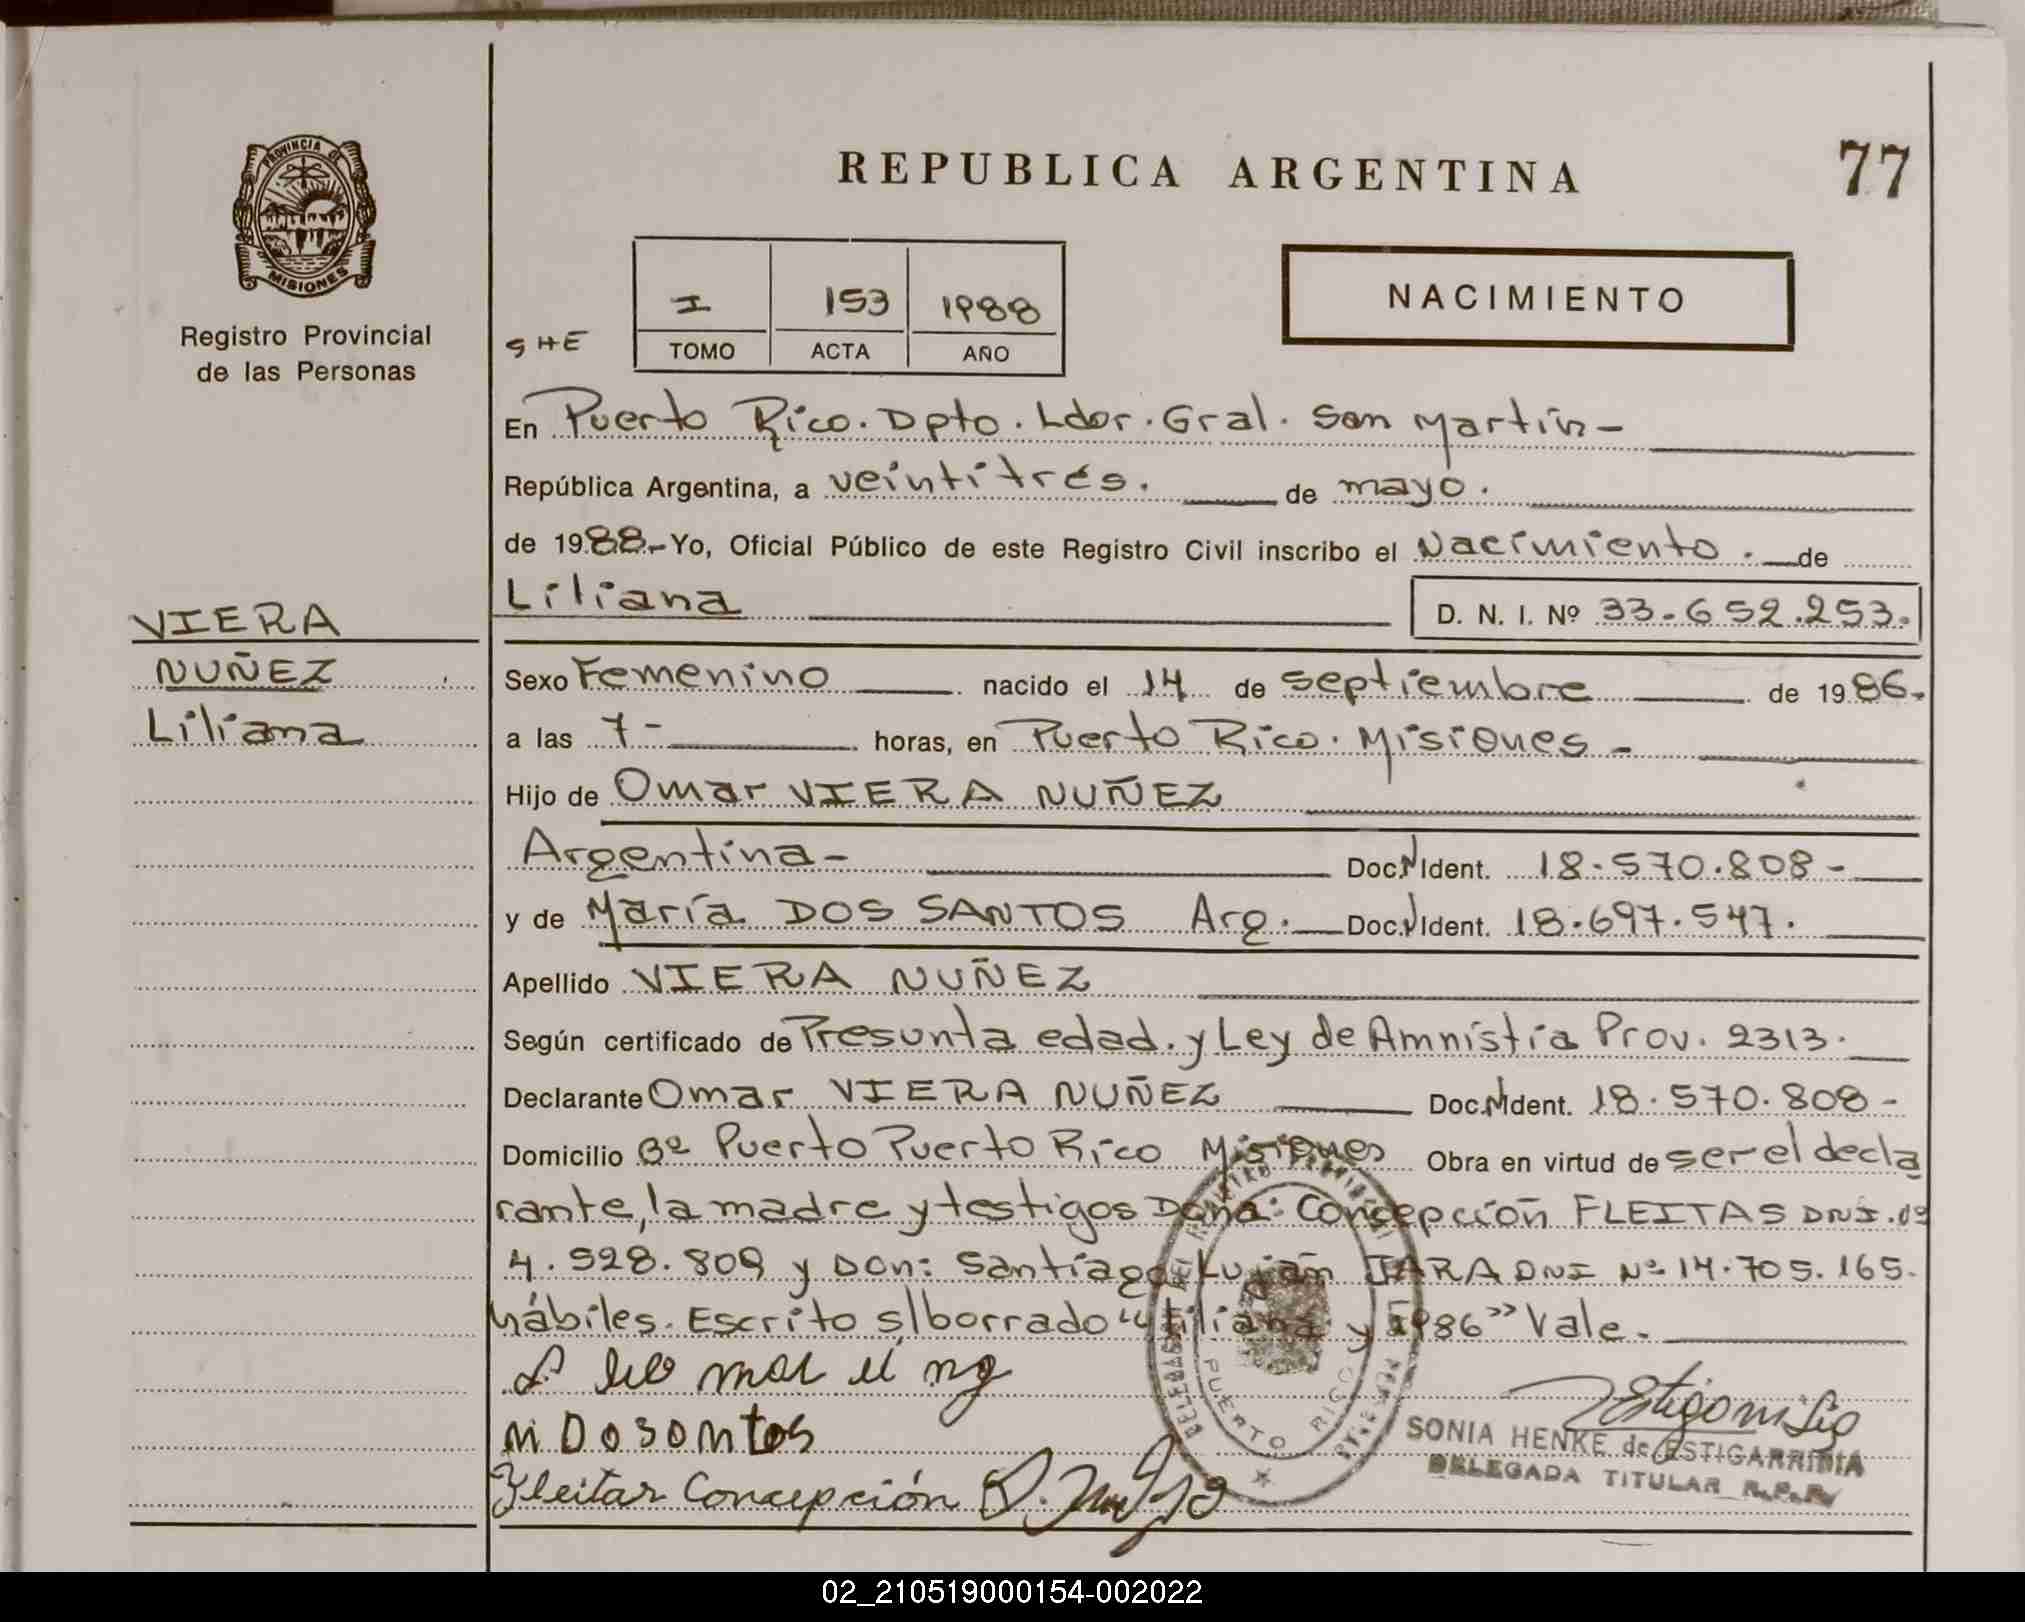 PROVINCIA DE
MISIONES
Registro Provincial
de las Personas
REPUBLICA ARGENTINA
77
I 153 1988
TOMO ACTA AÑO
SHE
NACIMIENTO
En Puerto Rico. Dpto. Ldor. Gral. San Martín-
República Argentina, a veintitrés. de mayo.
de 1988.- Yo, Oficial Público de este Registro Civil inscribo el Nacimiento. de
Liliana
D. N. I. Nº 33.652.253.
VIERA
NUÑEZ
Liliana
Sexo Femenino nacido el 14 de septiembre de 1986.
a las 7- horas, en Puerto Rico. Misiones-
Hijo de Omar VIERA NUÑEZ
Argentina- Doc.N Ident. 18.570.808-
y de María DOS SANTOS Arg. Doc.N Ident. 18.697.547.
Apellido VIERA NUÑEZ
Según certificado de Presunta edad. y Ley de Amnistía Prov. 2313.
Declarante Omar VIERA NUÑEZ Doc.N Ident. 18.570.808-
Domicilio Bº Puerto Puerto Rico Misiones Obra en virtud de ser el decla
rante, la madre y testigos Doña: Concepción FLEITAS DNI. Nº
4.528.809 y Don: Santiago Luján JARA DNI Nº 14.705.165.
hábiles. Escrito s/borrado "Liliana y 1986" Vale.
M DOSOntos
Fleitar Concepción
PUERTO RICO
SONIA HENKE de ESTIGARRIBIA
DELEGADA TITULAR R.P.P.
02_210519000154-002022